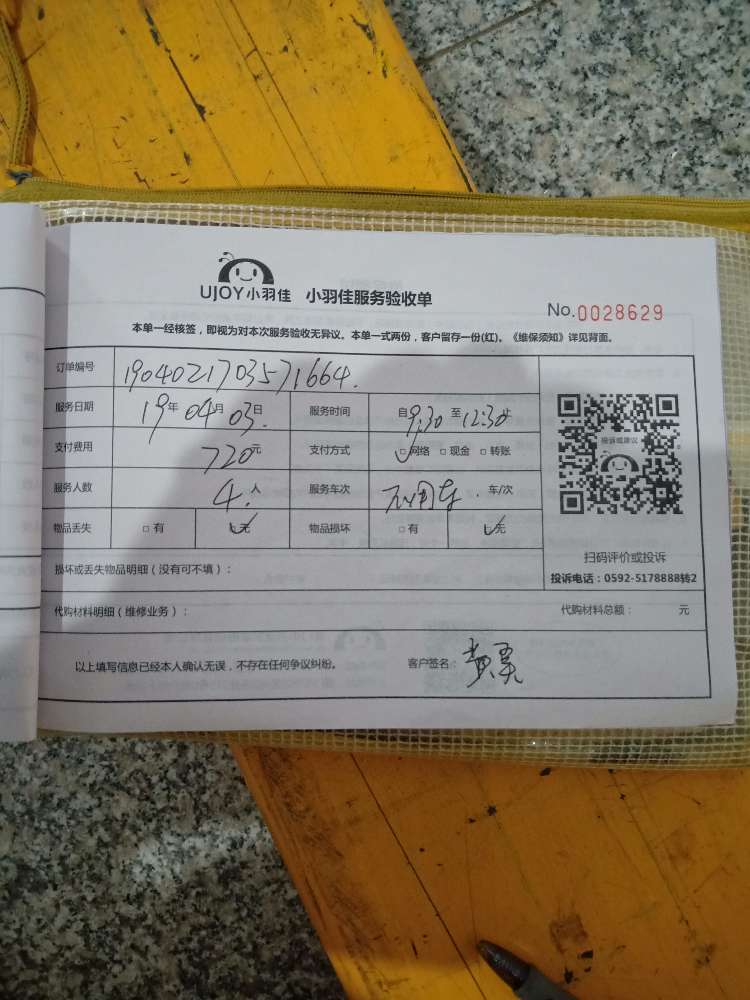 UJOY小羽佳 小羽佳服务验收单
No.0028629
本单一经核签，即视为对本次服务验收无异议。本单一式两份，客户留存一份(红)。《维保须知》详见背面。
订单编号 190402170357 1664.
服务日期 19年04月03日 服务时间 自9:30至12:30止
支付费用 720元 支付方式 □网络 □现金 □转账
服务人数 4.人 服务车次 车/次
物品丢失 □有 □无 物品损坏 □有 □无
投诉或建议
扫码评价或投诉
投诉电话：0592-5178888转2
损坏或丢失物品明细（没有可不填）：
代购材料明细（维修业务）： 代购材料总额： 元
以上填写信息已经本人确认无误，不存在任何争议纠纷。 客户签名： 黄